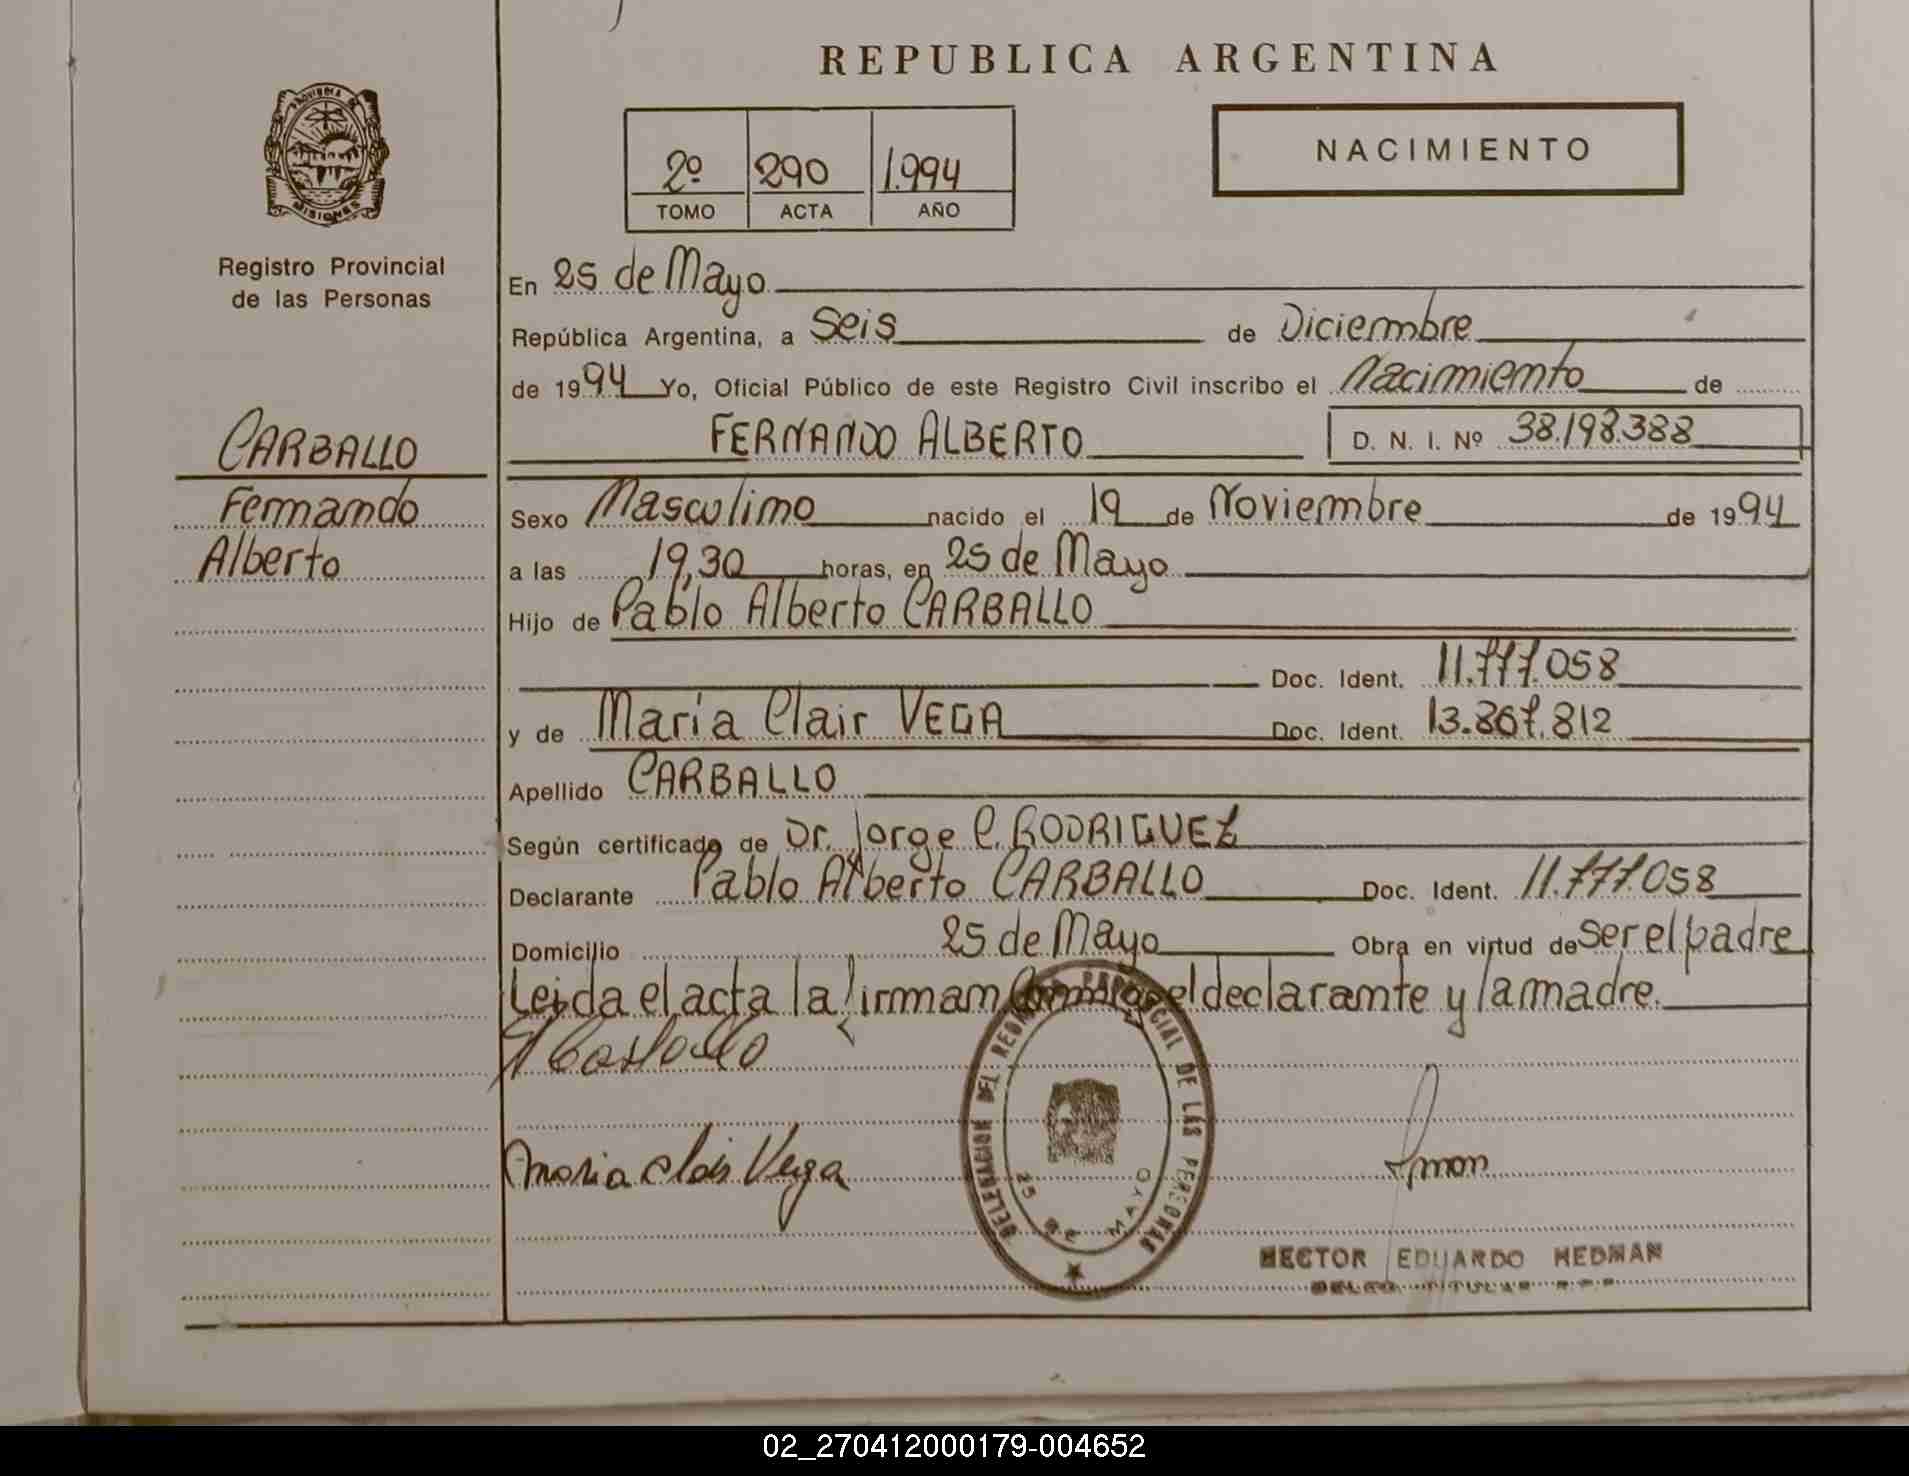 REPUBLICA ARGENTINA
PROVINCIA DE
MISIONES
Registro Provincial
de las Personas
2º 290 1.994
TOMO ACTA AÑO
NACIMIENTO
En 25 de Mayo
República Argentina, a Seis de Diciembre
de 1994 Yo, Oficial Público de este Registro Civil inscribo el Nacimiento de
CARBALLO
FERNANDO ALBERTO D. N. I. Nº 38.198.388
Fernando
Sexo Masculino nacido el 19 de Noviembre de 1994
Alberto
a las 19,30 horas, en 25 de Mayo
Hijo de Pablo Alberto CARBALLO
Doc. Ident. 11.777.058
y de María Clair VEGA Doc. Ident. 13.867.812
Apellido CARBALLO
Según certificado de Dr. Jorge C. RODRIGUEZ
Declarante Pablo Alberto CARBALLO Doc. Ident. 11.777.058
Domicilio 25 de Mayo Obra en virtud de ser el padre
Leida el acta la firman Conmigo el declarante y la madre.
DELEGACION DEL REGISTRO PROVINCIAL DE LAS PERSONAS
25 DE MAYO
Maria Clair Vega
HECTOR EDUARDO HEDMAN
02_270412000179-004652